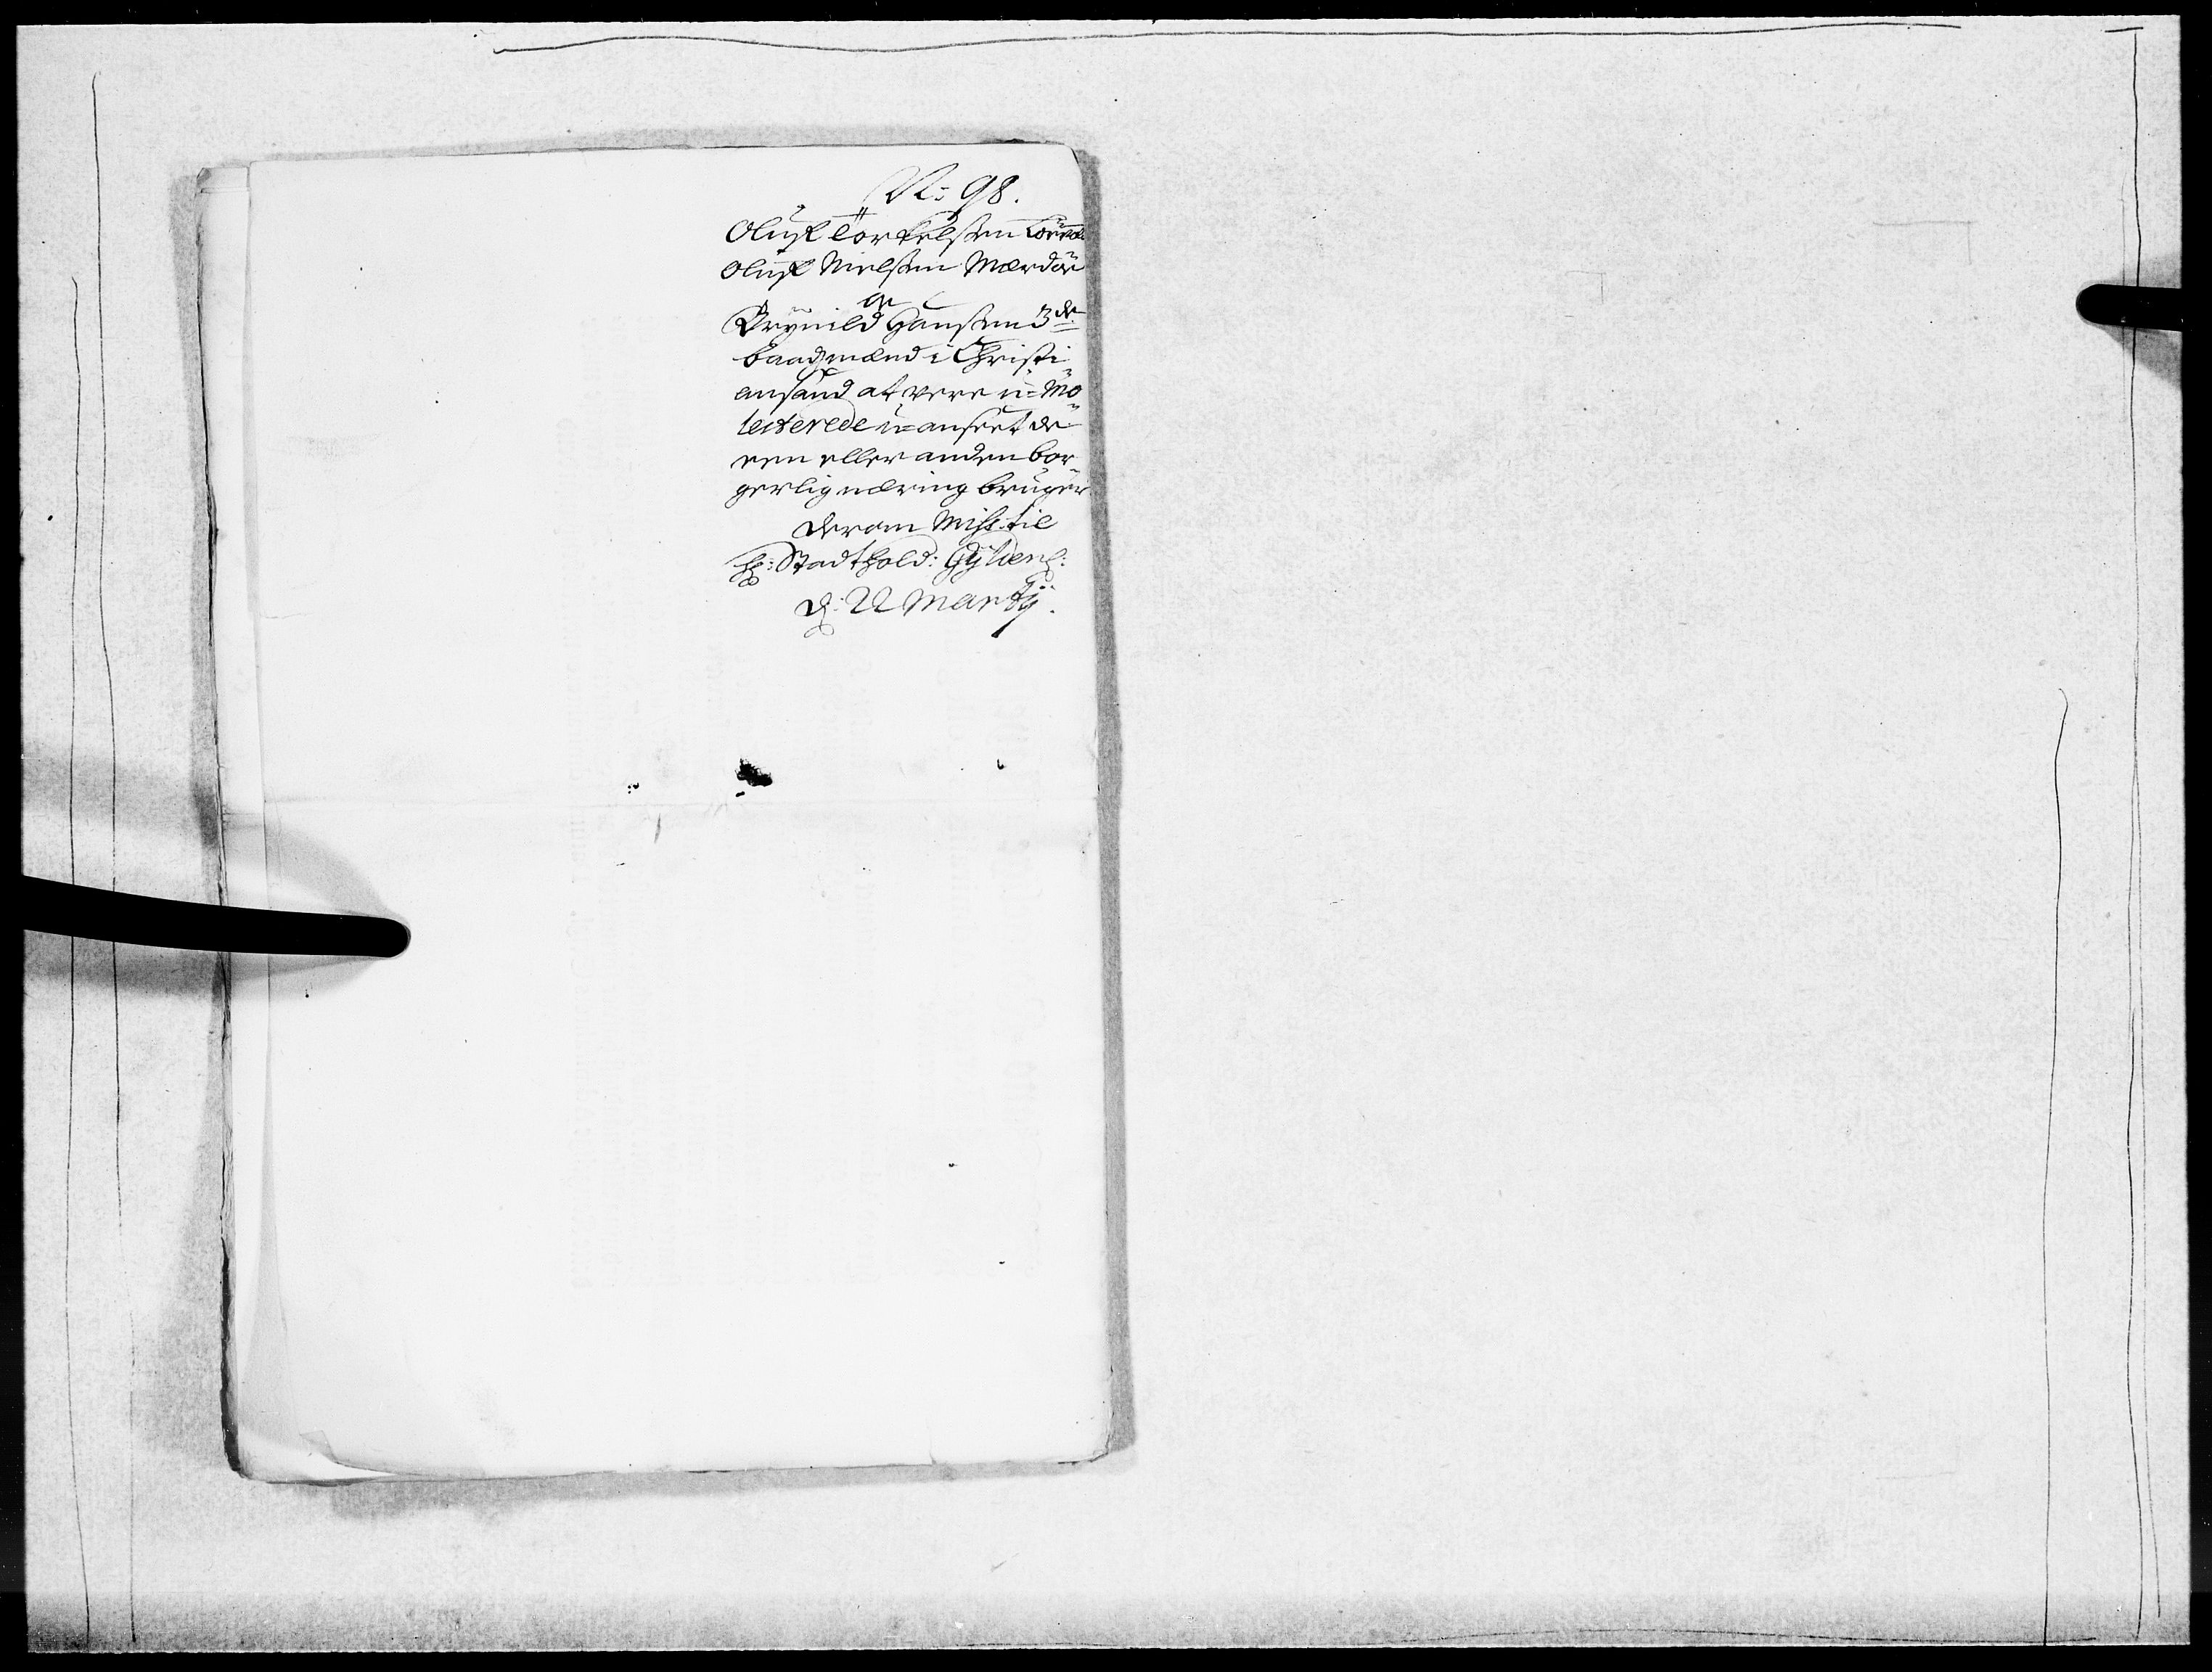 N: 98.
Oluf Torkelssen
Oluf Nielssen Mærdøe
og
Brynild Hanssen 3de
baadzmænd i Christi
ansand at være u-mo
lesterede u-anseet de
een eller anden bor
gerlig næring bruger
derom Miss: til
H: Stadthold: Gyldenl:
d: 22 Martij.